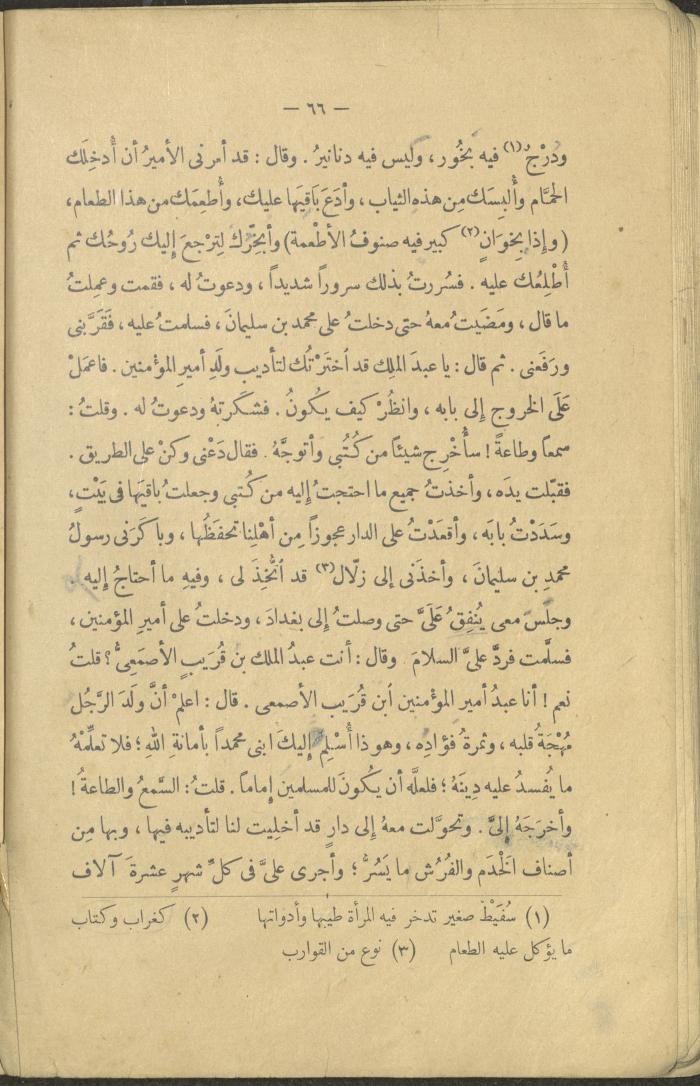 — ٦٦ —
ودُرْجٌ (١) فيه بخُور، وكيس فيه دنانيرُ. وقال: قد أمرنى الأميرُ أن أُدخِلَك
الحمَّام وأُلبِسَك مِن هذه الثياب، وأدَعَ بَاقيَها عليك، وأُطعِمَك من هذا الطعام،
(وإذا بِخِوَانٍ (٢) كبير فيه صنوفُ الأطعمة) وأبخِّرَك لِتَرْجعَ إليك رُوحُك ثم
أُطْلِعُك عليه. فسُررتُ بذلك سروراً شديداً، ودعوتُ له، فقمت وعمِلتُ
ما قال، ومَضَيتُ معهُ حتى دخلتُ على محمد بن سليمانَ، فسلمتُ عليه، فَقَرَّبنى
ورَفَعنى. ثم قال: يا عبدَ الملِك قد اُخترْتُك لتأديبِ ولَدِ أميرِ المؤمنين. فاعمَلْ
عَلَى الخروجِ إلى بابه، وانظُرْ كيف يكُونُ. فشكرتهُ ودعوتُ له. وقلتُ:
سمعاً وطاعةً! سأُخْرِج شيئاً من كُتُبى وأتوجَّهُ. فقال دَعْنى وكنْ على الطريق.
فقبّلت يدَه، وأخذتُ جميع ما احتجتُ إليه من كُتبى وجعلتُ باقيَها فى بَيْتٍ،
وسَدَدْتُ بابَه، وأقعَدْتُ على الدار عجوزاً مِن أهْلِنا تحفَظُها، وباكَرَنى رسولُ
محمدِ بن سليمانَ، وأخذَنى إلى زلّال (٣) قد اُتُّخِذَ لى، وفيهِ ما أحتاجُ إليه.
وجلَس معى يُنفِقُ عَلَىَّ حتى وصلتُ إلى بغدادَ، ودخلتُ على أميرِ المؤمنين،
فسلَّمت فردَّ علىَّ السلامَ وقال: أنت عبدُ الملك بن قُرَيبٍ الأصمَعىُّ؟ قلتُ
نعم! أنا عبدُ أمير المؤمنين اُبن قُرَيب الأصمعى. قال: اعلمْ أنَّ ولَدَ الرَّجُلِ
مُهْجَةُ قلبه، وثمرةُ فؤادِه، وهو ذا أُسْلِمُ إليكَ ابنى محمداً بأمانةِ اللهِ؛ فلا تعلِّمْهُ
ما يُفسدُ عليه دِينَهُ؛ فلعلَّه أن يكُونَ للمسلمين إماماً. قلتُ: السَّمعُ والطاعةُ!
وأخرَجَهُ إلىَّ. وتحوَّلت معهُ إلى دارٍ قد أخلِيت لنا لتأديبه فيها، وبها مِن
أصناف الخَدَم والفُرُش ما يَسُرُّ؛ وأجرى علىَّ فى كلِّ شهرٍ عشرةَ آلاف
(١) سُفَيْطٌ صغير تدخر فيه المرأة طيبها وأدواتها (٢) كغراب وكتاب
ما يؤكل عليه الطعام (٣) نوع من القوارب